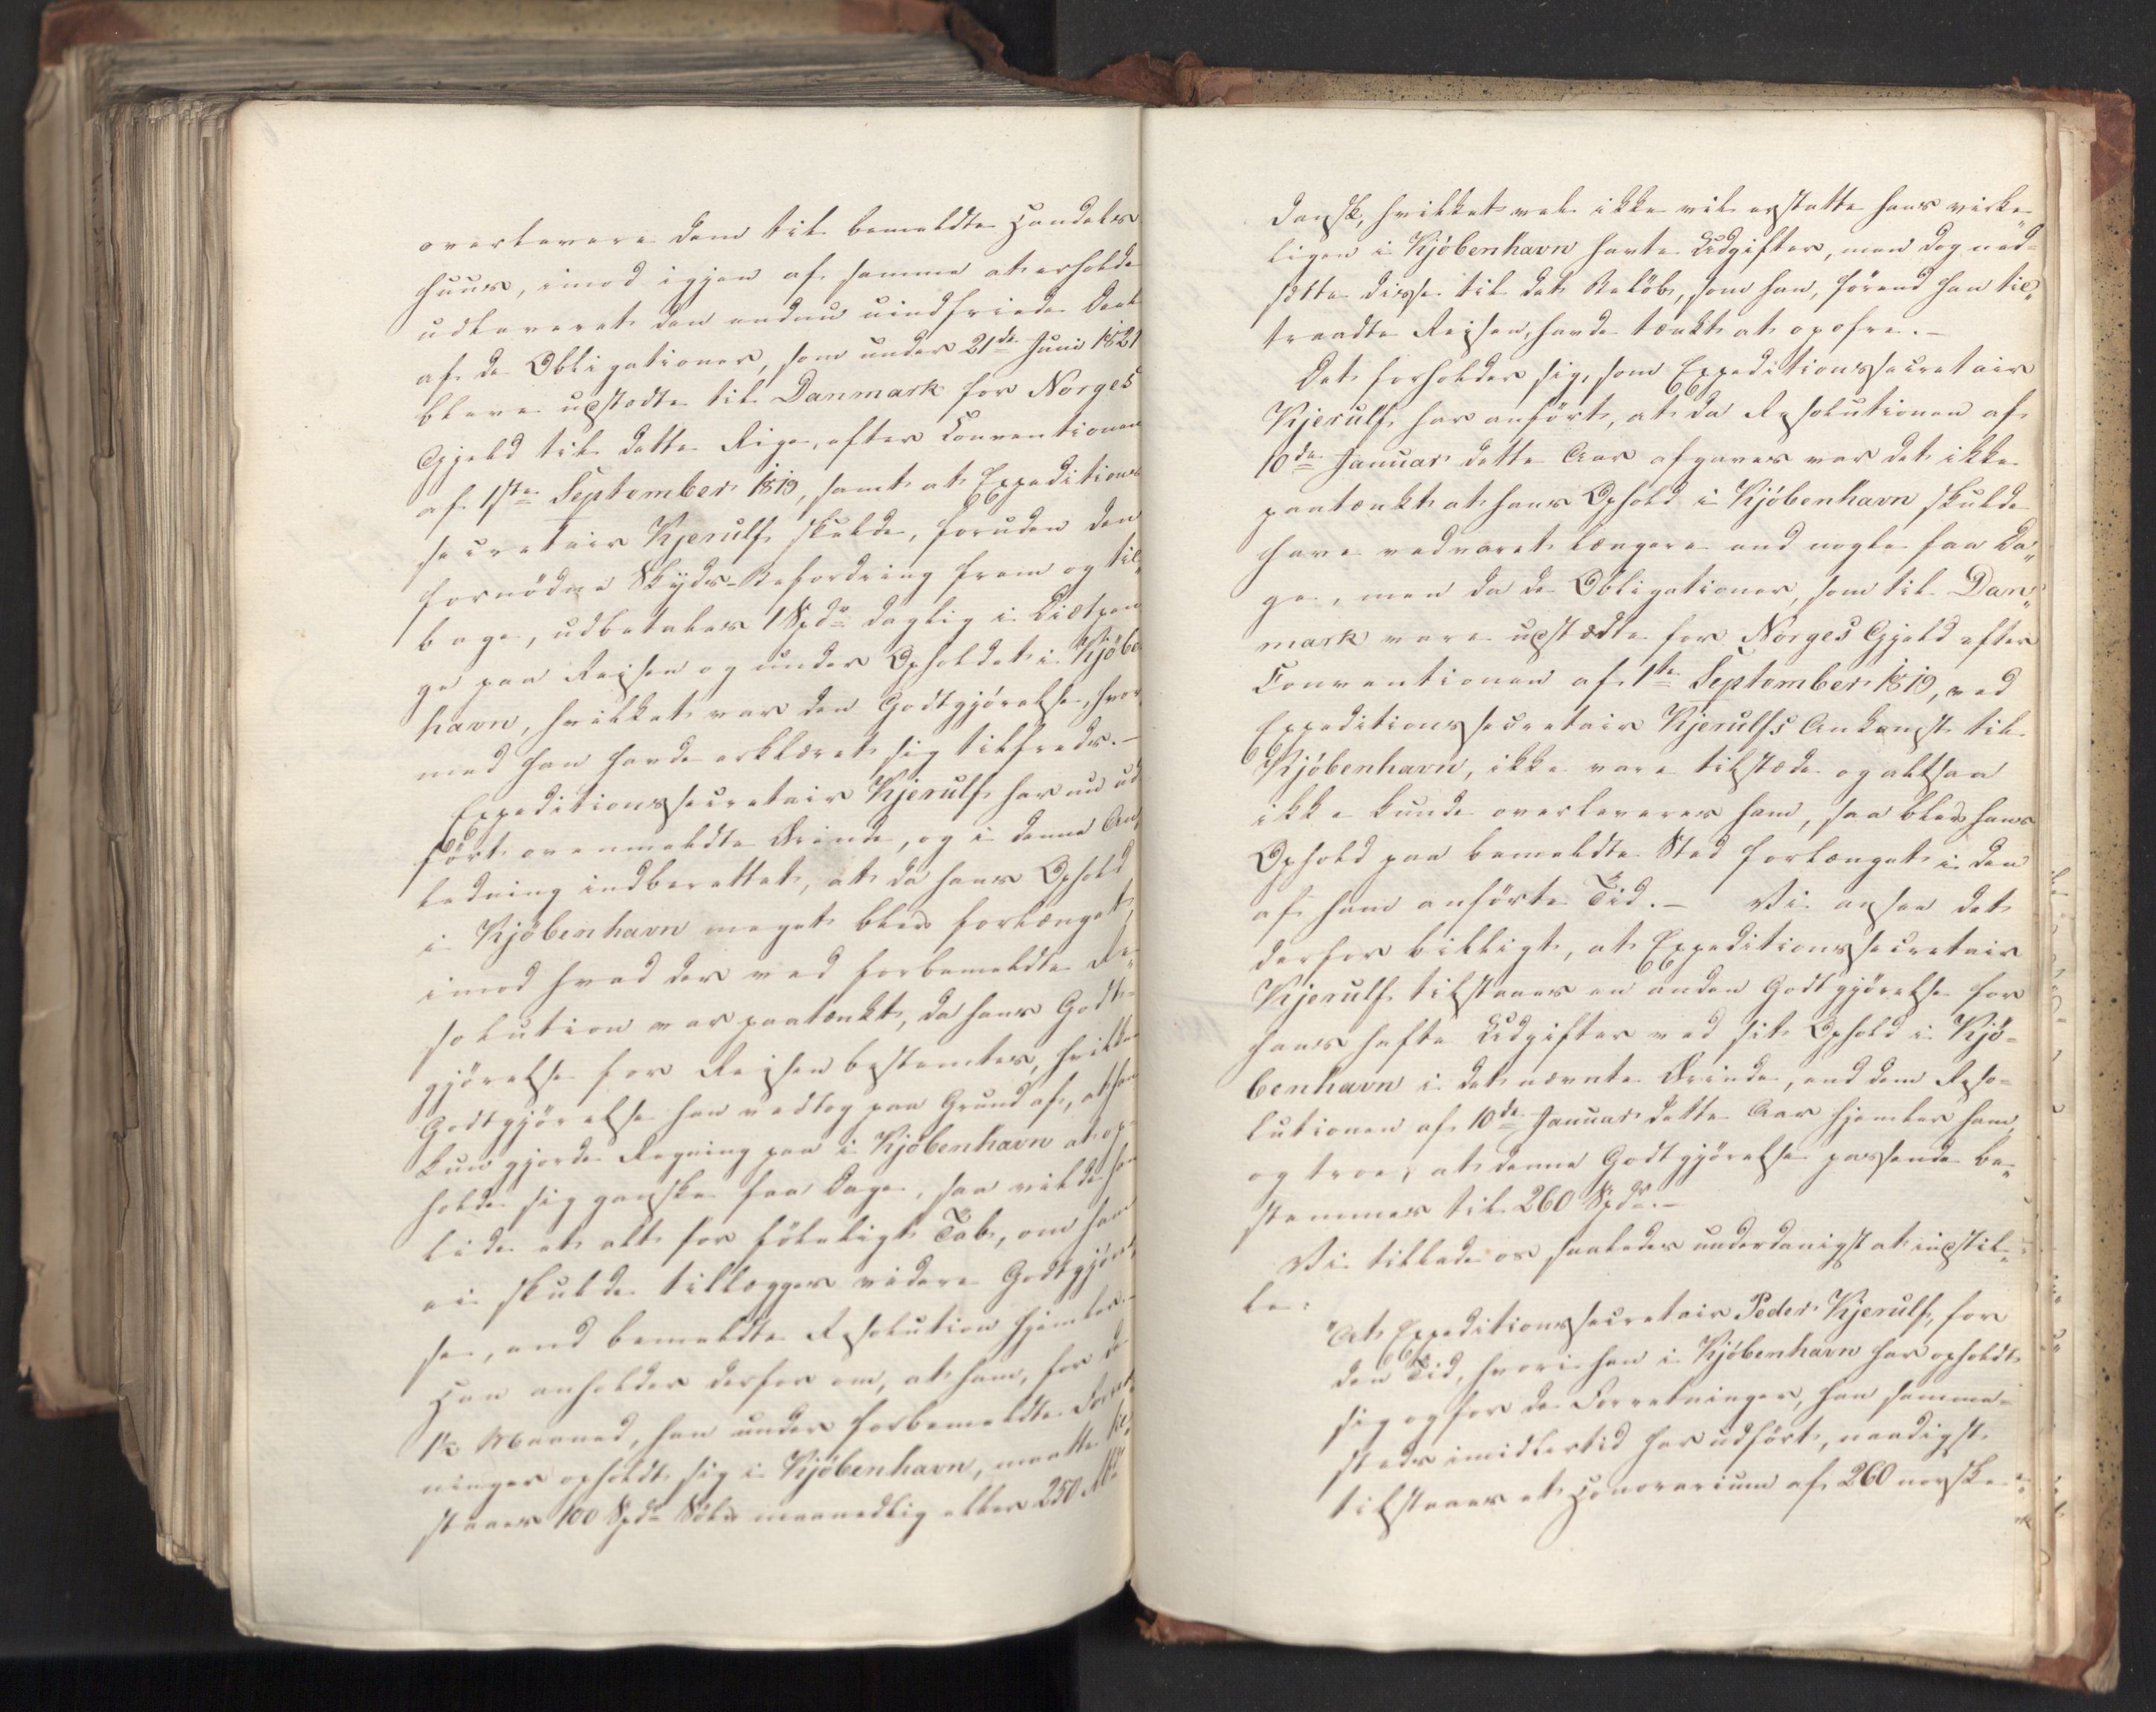 overlevere dem til bemeldte Handels
huus, imod igjen af samme at erholde
udleveret den endnu uindfriede Deel
af de Obligationer, som under 21de Juni 1821
bleve udstædte til Danmark for Norges
Gjeld til dette Rige, efter Conventionen
af 1ste September 1819, samt at Expeditions
secretair Kjerulf skulde, foruden den
fornödne Skyds-Befordring frem og til„
bage, udbetales 1 Spdr daglig i Diætpen
ge paa Reisen og under Opholdet i Kjöben
havn, hvilket var den Godtgjörelse, hvor
med han havde erklæret sig tilfreds.—
Expeditionssecretair Kjerulf har nu ud
fört ovenmeldte Ærinde, og i denne An„
ledning indberettet, at da hans Ophold
i Kjöbenhavn meget blev forlænget
imod hvad der ved forbemeldte Re„
solution var paatænkt, da hans Godt-
gjörelse for Reisen bestemtes, hvilken
Godtgjörelse han vedtog paa Grund af, at han
kun gjorde Regning paa i Kjöbenhavn at op
holde sig ganske faa Dage, saa vilde han
lide et alt for föleligt Tab, om ham
ei skulde tillægges videre Godtgjörel
se, end bemeldte Resolution hjemler.—
Han anholder derfor om, at ham, for de
1½ Maaned, han under forbemeldte Forret
ninger opholdt sig i Kjöbenhavn, maatte til„
staaes 100 Spdr Sölv maanedlig eller 250 Rbdr
dansk, hvilket vel ikke vil erstatte hans virke„
ligen i Kjöbenhavn havte Udgifter, men dog ned-
sætte disse til det Belöb, som han, förend han til„
traadte Reisen, havde tænkt at opofre.—
Det forholder sig, som Expeditionssecretair
Kjerulf har anfört, at da Resolutionen af
10de Januar dette Aar afgaves var det ikke
paatænkt at hans Ophold i Kjöbenhavn skulde
have vedvaret længere end nogle faa Da„
ge, men da de Obligationer, som til Dan„
mark vare udstædte for Norges Gjeld efter
Conventionen af 1ste September 1819, ved
Expeditionssecretair Kjerulfs Ankomst til
Kjöbenhavn, ikke vare tilstæde og altsaa
ikke kunde overleveres ham, saa blev hans
Ophold paa bemeldte Sted forlænget i den
af ham anförte Tid.— Vi ansee det
derfor billigt, at Expeditionssecretair
Kjerulf tilstaaes en anden Godtgjörelse for
hans hafte Udgifter ved sit Ophold i Kjö-
benhavn i det nævnte Ærinde, end den Reso-
lutionen af 10de Januar dette Aar hjemler ham,
og troe, at denne Godtgjörelse passende be„
stemmes til 260 Spdr.—
Vi tillade os saaledes underdanigst at indstil„
le:
"At Expeditionssecretair Peder Kjerulf, for
den Tid, hvori han i Kjöbenhavn har opholdt
sig og for de Forretninger, han samme-
steds imidlertid har udfört, naadigst
tilstaaes et Honorarium af 260 norske